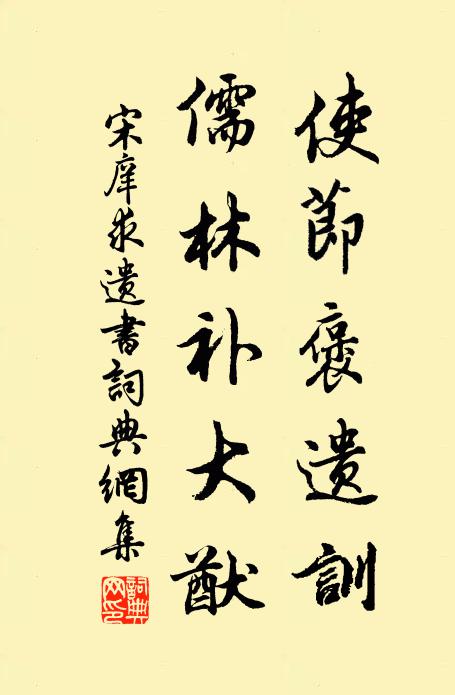 使節褒遺訓
儒林补大猷
宋庠求遺書詞典網集
詞典网印